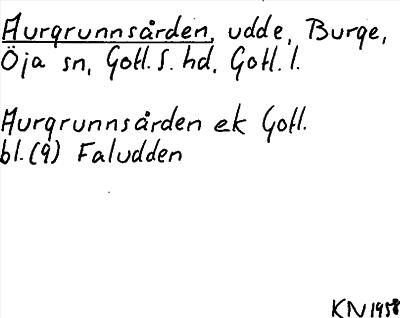 Aurgrunnsården, udde, Burge,
Öja sn, Gotl. S. hd, Gotl. l.
Aurgrunnsården ek Gotl.
bl. (9) Faludden
KN 1958